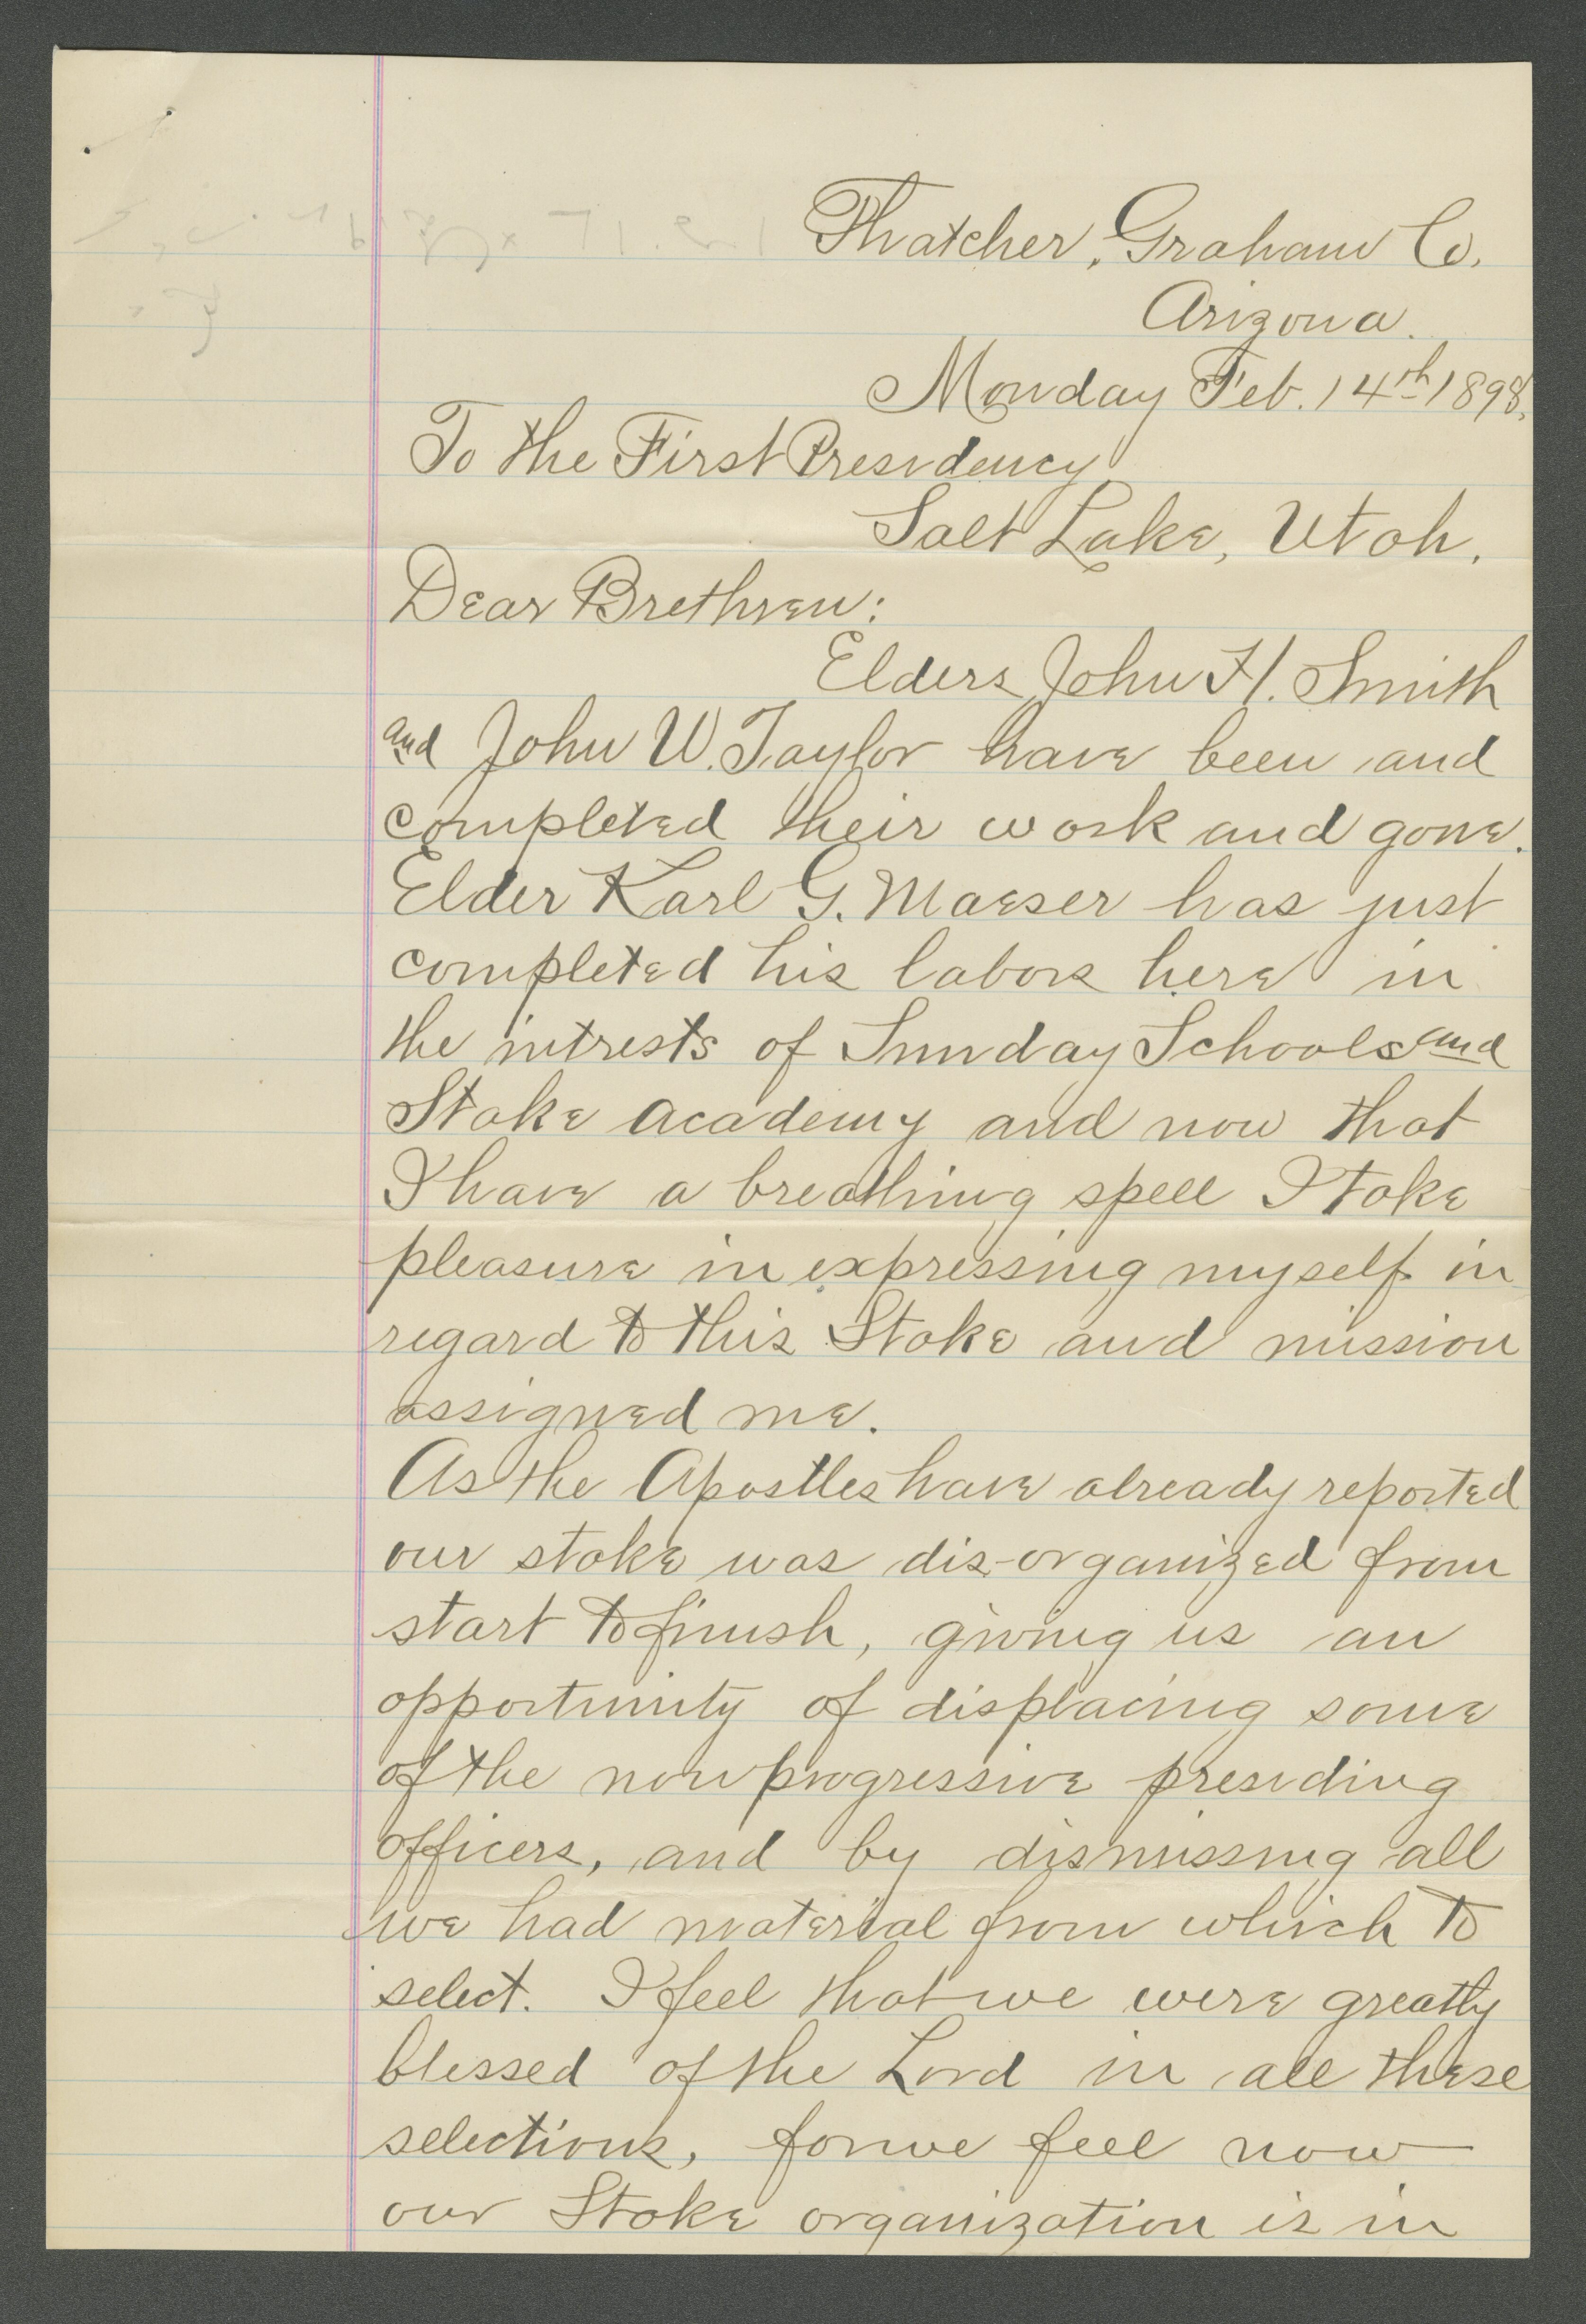 Thatcher, Graham Co.
Arizona.
Monday Feb. 14th 1898.
To the First Presidency
Salt Lake, Utah.
Dear Brethren:
Elders John H. Smith
and John W. Taylor have been and
completed their work and gone.
Elder Karl G. Maeser has just
completed his labors here in
the intrests of Sunday Schools and
Stake Academy and now that
I have a breathing spell I take
pleasure in expressing myself in
regard to this Stake and mission
assigned me.
As the Apostles have already reported
our stake was dis-organized from
start to finish, giving us an
opportunity of displacing some
of the non progressive presiding
officers, and by dismissing all
we had material from which to
select. I feel that we were greatly
blessed of the Lord in all these
selections, for we feel now
our Stake organization is in